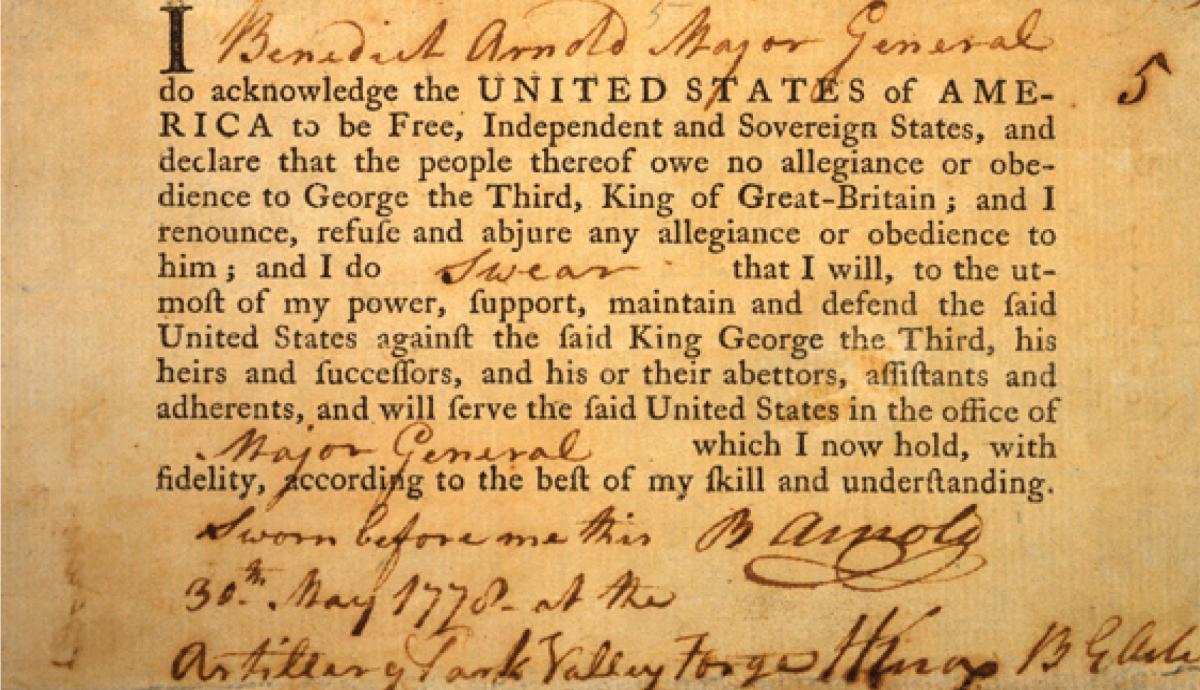 I Benedict Arnold Major General
5
do acknowledge the UNITED STATES of AME-
RICA to be Free, Independent and Sovereign States, and
declare that the people thereof owe no allegiance or obe-
dience to George the Third, King of Great-Britain ; and I
renounce, refuſe and abjure any allegiance or obedience to
him ; and I do Swear that I will, to the ut-
moſt of my power, ſupport, maintain and defend the ſaid
United States againſt the ſaid King George the Third, his
heirs and ſucceſſors, and his or their abettors, aſſiſtants and
adherents, and will ſerve the ſaid United States in the office of
Major General which I now hold, with
fidelity, according to the beſt of my ſkill and underſtanding.
Sworn before me this B Arnold
30th. May 1778 - at the
Artillery Park Valley Forge HKnox B G Arti